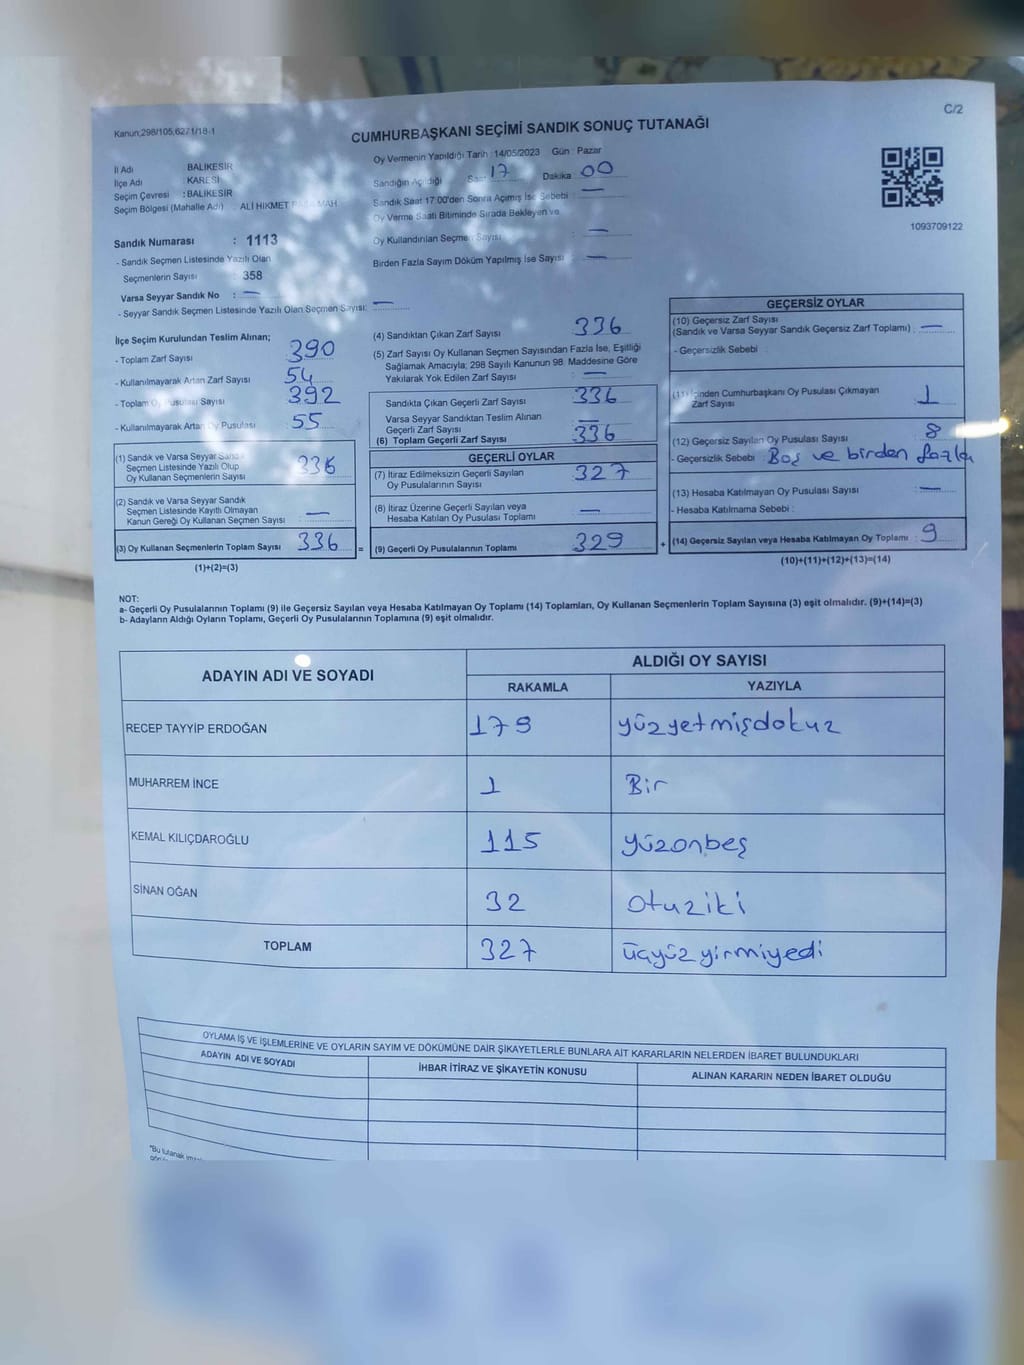 C/2
Kanun;298/105,6271/18-1
CUMHURBAŞKANI SEÇİMİ SANDIK SONUÇ TUTANAĞI
İl Adı BALIKESİR
İlçe Adı KARESİ
Seçim Çevresi : BALIKESİR
Seçim Bölgesi (Mahalle Adı) : ALİ HİKMET MAH
Oy Vermenin Yapıldığı Tarih : 14/05/2023 Gün : Pazar
Sandığın Açıldığı Saat 17 Dakika 00
Sandık Saat 17.00'den Sonra Açımış İse Sebebi : —
Oy Verme Saati Bitiminde Sırada Bekleyen ve
Oy Kullandırılan Seçmen Sayısı : —
Birden Fazla Sayım Döküm Yapılmış İse Sayısı : —
1093709122
Sandık Numarası : 1113
- Sandık Seçmen Listesinde Yazılı Olan
Seçmenlerin Sayısı : 358
Varsa Seyyar Sandık No : —
- Seyyar Sandık Seçmen Listesinde Yazılı Olan Seçmen Sayısı: —
İlçe Seçim Kurulundan Teslim Alınan;
- Toplam Zarf Sayısı 390
- Kullanılmayarak Artan Zarf Sayısı 54
- Toplam Oy Pusulası Sayısı 392
- Kullanılmayarak Artan Oy Pusulası 55
(1) Sandık ve Varsa Seyyar Sandık
Seçmen Listesinde Yazılı Olup
Oy Kullanan Seçmenlerin Sayısı 336
(2) Sandık ve Varsa Seyyar Sandık
Seçmen Listesinde Kayıtlı Olmayan
Kanun Gereği Oy Kullanan Seçmen Sayısı : —
(3) Oy Kullanan Seçmenlerin Toplam Sayısı 336 =
(1)+(2)=(3)
(4) Sandıktan Çıkan Zarf Sayısı 336
(5) Zarf Sayısı Oy Kullanan Seçmen Sayısından Fazla İse, Eşitliği
Sağlamak Amacıyla; 298 Sayılı Kanunun 98. Maddesine Göre
Yakılarak Yok Edilen Zarf Sayısı : —
Sandıkta Çıkan Geçerli Zarf Sayısı 336
Varsa Seyyar Sandıktan Teslim Alınan
Geçerli Zarf Sayısı : —
(6) Toplam Geçerli Zarf Sayısı 336
GEÇERLİ OYLAR
(7) İtiraz Edilmeksizin Geçerli Sayılan
Oy Pusulalarının Sayısı 327
(8) İtiraz Üzerine Geçerli Sayılan veya
Hesaba Katılan Oy Pusulası Toplamı : —
(9) Geçerli Oy Pusulalarının Toplamı 329 +
GEÇERSİZ OYLAR
(10) Geçersiz Zarf Sayısı
(Sandık ve Varsa Seyyar Sandık Geçersiz Zarf Toplamı) : —
- Geçersizlik Sebebi :
(11) İçinden Cumhurbaşkanı Oy Pusulası Çıkmayan
Zarf Sayısı 1
(12) Geçersiz Sayılan Oy Pusulası Sayısı 8
- Geçersizlik Sebebi : Boş ve birden fazla
(13) Hesaba Katılmayan Oy Pusulası Sayısı : —
- Hesaba Katılmama Sebebi :
(14) Geçersiz Sayılan veya Hesaba Katılmayan Oy Toplamı : 9
(10)+(11)+(12)+(13)=(14)
NOT:
a- Geçerli Oy Pusulalarının Toplamı (9) ile Geçersiz Sayılan veya Hesaba Katılmayan Oy Toplamı (14) Toplamları, Oy Kullanan Seçmenlerin Toplam Sayısına (3) eşit olmalıdır. (9)+(14)=(3)
b- Adayların Aldığı Oyların Toplamı, Geçerli Oy Pusulalarının Toplamına (9) eşit olmalıdır.
ADAYIN ADI VE SOYADI ALDIĞI OY SAYISI
RAKAMLA YAZIYLA
RECEP TAYYİP ERDOĞAN 179 yüzyetmişdokuz
MUHARREM İNCE 1 Bir
KEMAL KILIÇDAROĞLU 115 yüzonbeş
SİNAN OĞAN 32 otuziki
TOPLAM 327 üçyüzyirmiyedi
OYLAMA İŞ VE İŞLEMLERİNE VE OYLARIN SAYIM VE DÖKÜMÜNE DAİR ŞİKAYETLERLE BUNLARA AİT KARARLARIN NELERDEN İBARET BULUNDUKLARI
ADAYIN ADI VE SOYADI İHBAR İTİRAZ VE ŞİKAYETİN KONUSU ALINAN KARARIN NEDEN İBARET OLDUĞU
"Bu tutanak